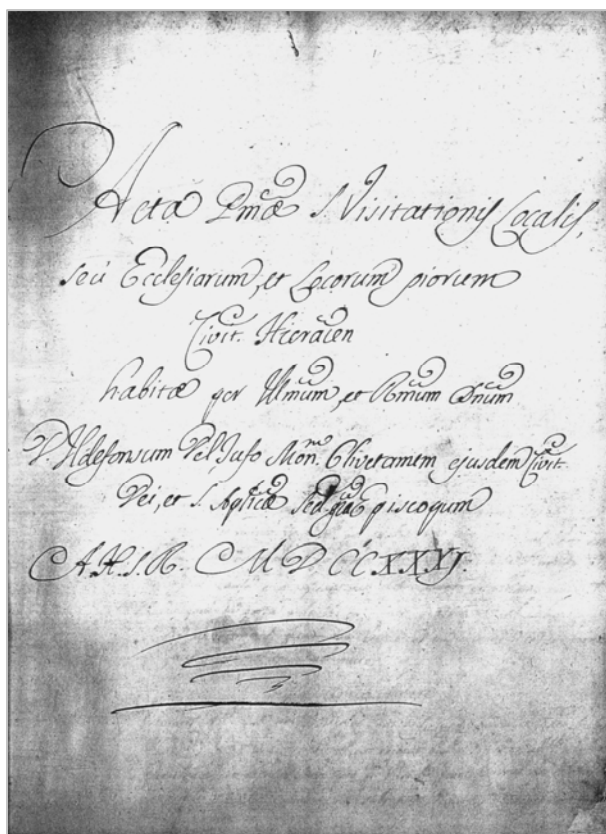 Acta Pmæ S. Visitationis Localis,
seu Ecclesiarum, et Locorum piorum
Civit. Hieracien
habitæ per Illmum, et Rmum Dnum
D. Ildefonsum Del Tufo Mon. Olivetanem ejusdem Civit.
Dei, et S. Aplicæ Sed. gratia Episcopum
A. H. S. R. MDCCXXXI.